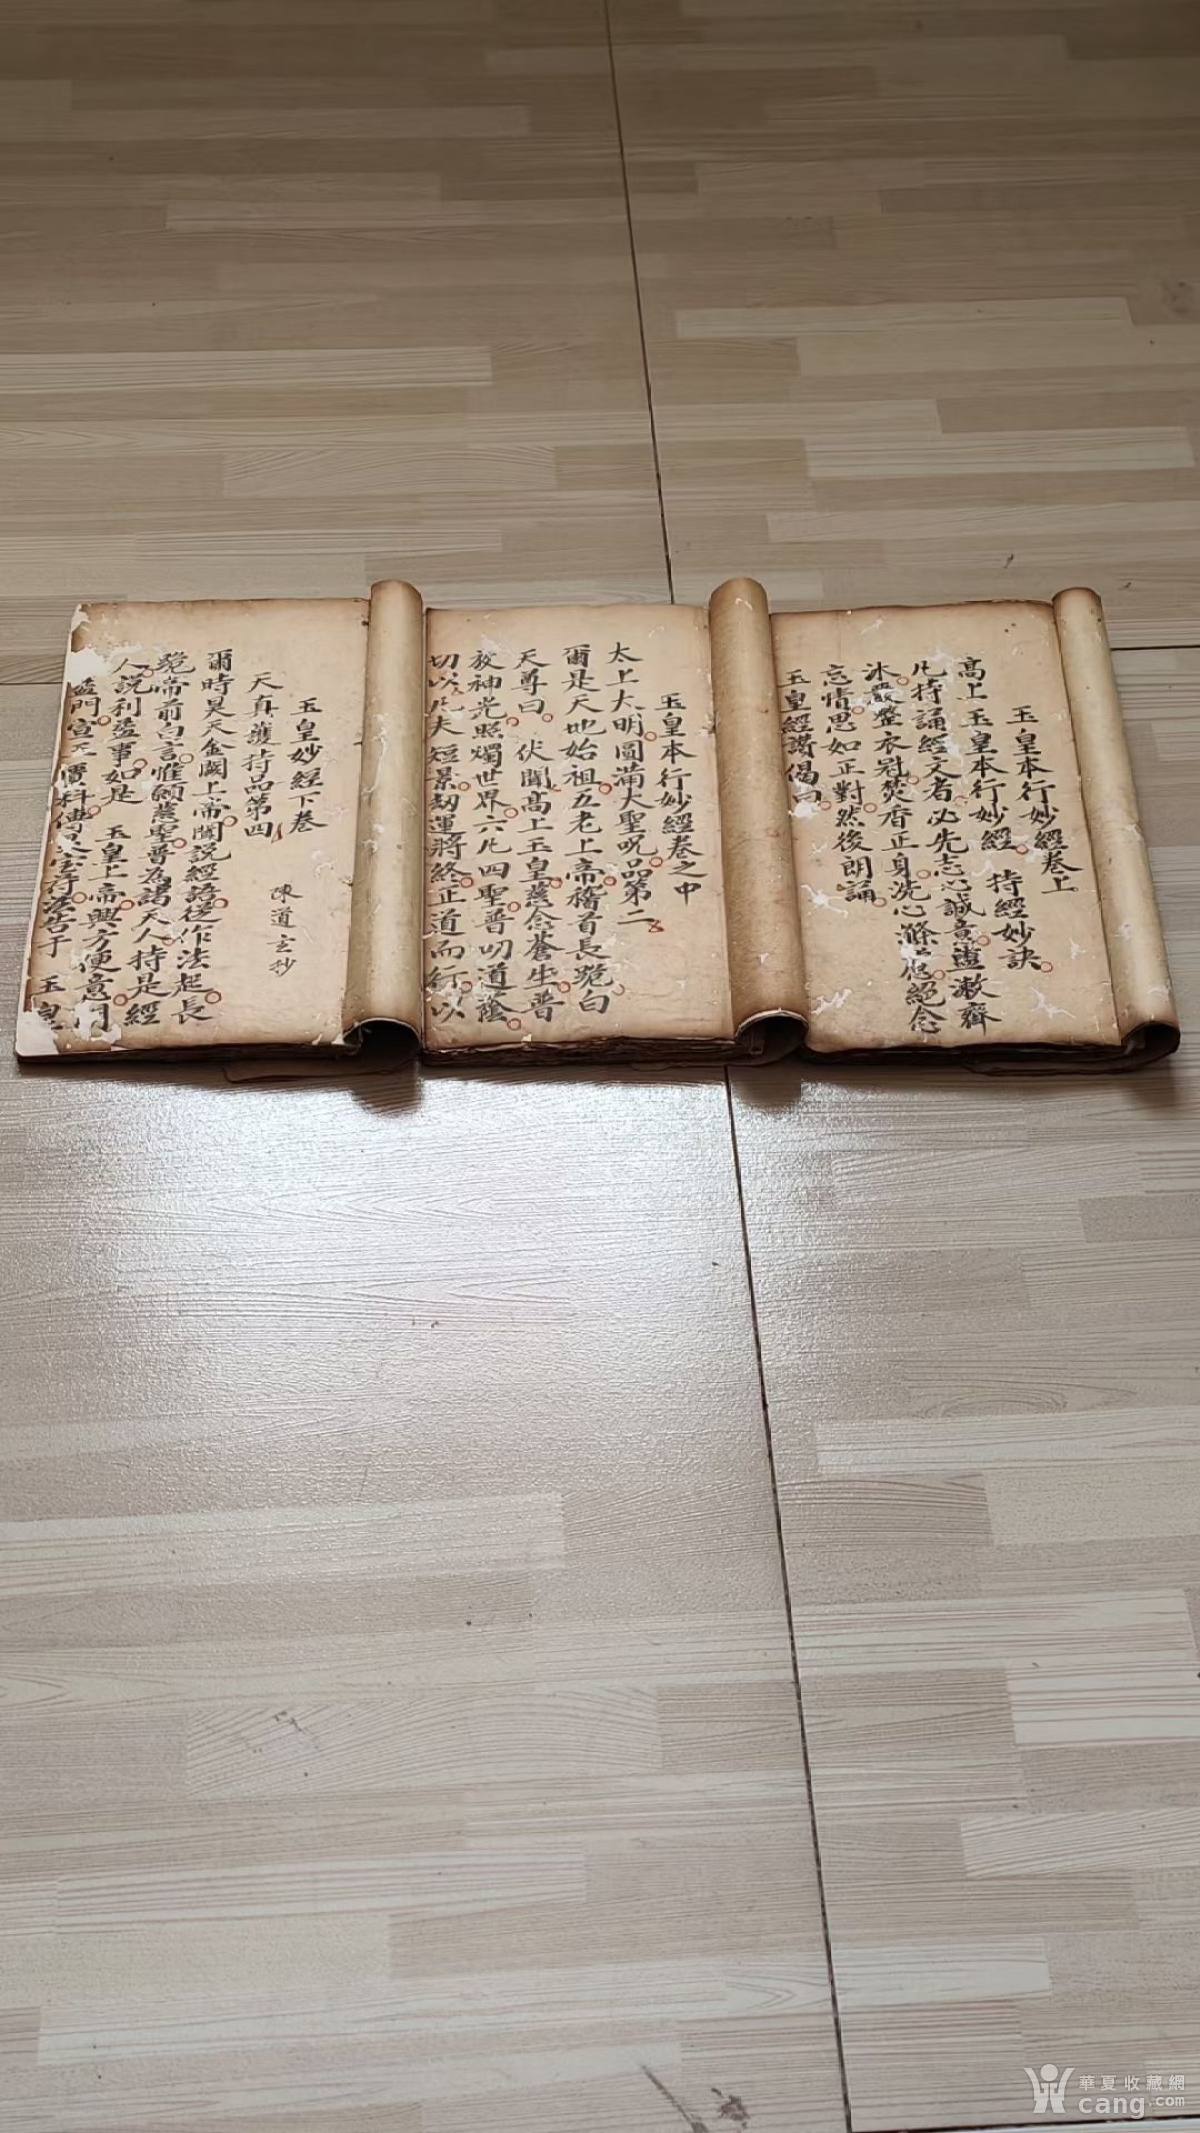 玉皇本行妙經卷上
高上 玉皇本行妙經 持經妙訣
凡持誦經文者必先志心誠意盥漱齋
沐嚴整衣冠焚香正身洗心滌慮絕念
忘情思如正對然後朗誦
玉皇經讚偈曰
玉皇本行妙經卷之中
太上大明圓滿大聖呪品第二
爾是天地始祖五老上帝稽首長跪白
天尊曰 伏聞高上玉皇慈念蒼生普
放神光照燭世界六凡四聖普叨道蔭
切以凡夫短景劫運將終正道而行以
玉皇妙經下卷
天真護持品第四 陳道玄抄
爾時昊天金闕上帝聞說經語從作法起長
跪帝前白言惟願慈聖普為諸天人持是經
人說利益事如是 玉皇上帝興方便意門
益門宣 科 告于 玉皇
華夏收藏網
cang.com